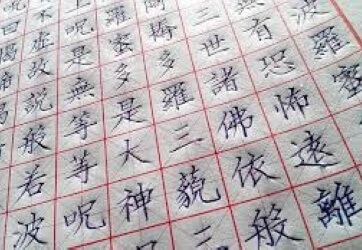 波羅蜜
無有恐怖遠離
三世諸佛依般
耨多羅三藐三
羅蜜多是大神
上呪是無等等呪
不虛故說般若波